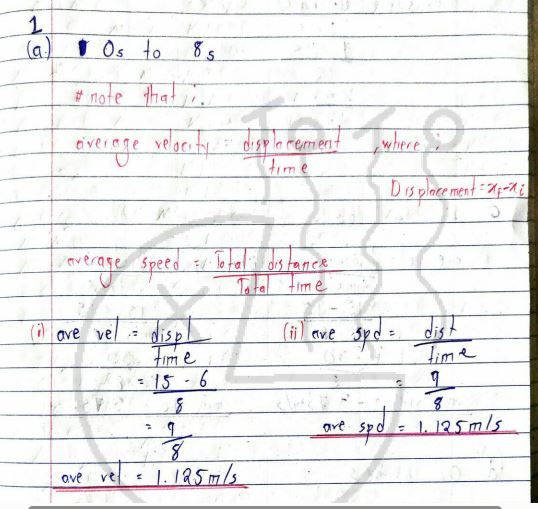 1
(a) 0s to 8s
# note that ;
average velocity = displacement / time , where ;
Displacement = xf - xi
average speed = Total distance / Total time
(i) ave vel = displ / time
= 15 - 6 / 8
= 9 / 8
ave vel = 1.125m/s
(ii) ave spd = dist / time
= 9 / 8
ave spd = 1.125m/s